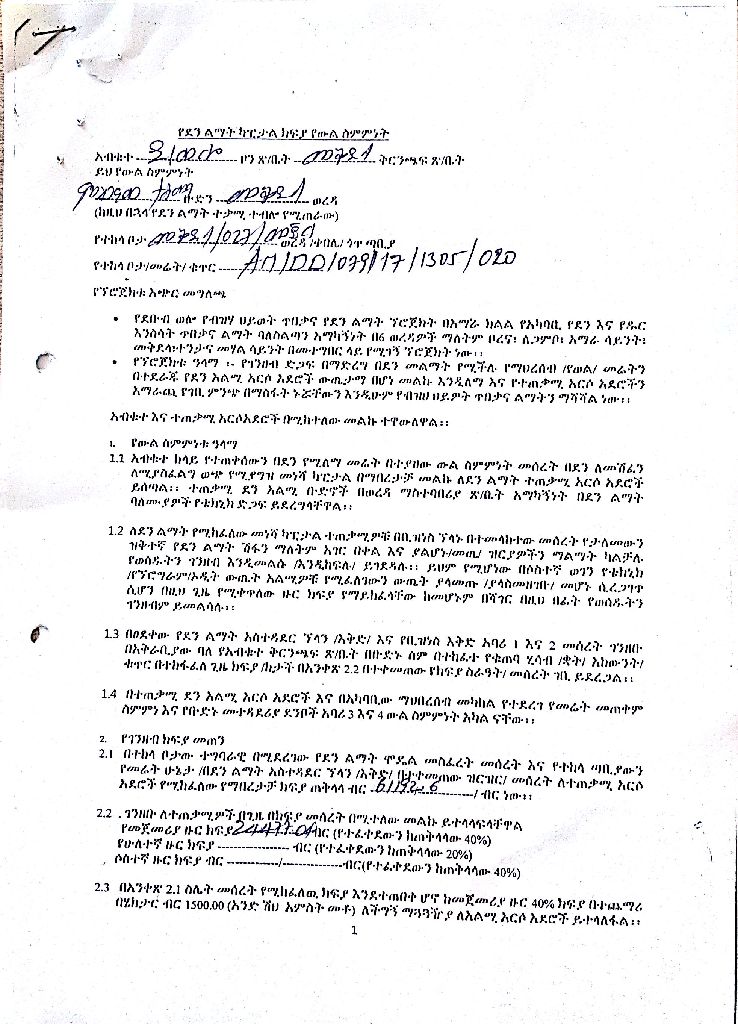 የደን ልማት ካፒታል ክፍያ የውል ስምምነት
አብቁተ ዞን ጽ/ቤት ቅርንጫፍ ጽ/ቤት
ይህ የውል ስምምነት
ቡድን ወረዳ
(ከዚህ በኋላ የደን ልማት ተቃሚ ተብሎ የሚጠራው)
የተከላ ቦታ ወረዳ /ቀበሌ/ ጎጥ ጣቢያ
የተከላ ቦታ/መሬት/ ቁጥር AM/DD/079/17/1305/020
የፕሮጀክቱ አጭር መግለጫ
• የደቡብ ወሎ የብዝሃ ህይወት ጥበቃና የደን ልማት ፕሮጀክት በአማራ ክልል የአካባቢ የደን እና የዱር
እንስሳት ጥበቃና ልማት ባለስልጣን አማካኝነት በ6 ወረዳዎች ማለትም ቦረና፣ ለጋምቦ፣ አማራ ሳይንት፣
መቅደላ፣ተንታና መሃል ሳይንት በመተግበር ላይ የሚገኝ ፕሮጀክት ነው፡፡
• የፕሮጀክቱ ዓላማ ፡- የገንዘብ ድጋፍ በማድረግ በደን መልማት የሚችሉ የማህረሰብ /የወል/ መሬትን
በተደራጁ የደን አልሚ አርሶ አደሮች ውጤታማ በሆነ መልኩ እንዲለማ እና የተጠቃሚ አርሶ አደሮችን
አማራጭ የገቢ ምንጭ በማስፋት ኑሯቸውን እንዲሁም የብዝሀ ህይዎት ጥበቃና ልማትን ማሻሻል ነው፡፡
አብቁተ እና ተጠቃሚ አርሶአደሮች በሚከተለው መልኩ ተዋውለዋል፡፡
1. የውል ስምምነቱ ዓላማ
1.1 አብቁተ ከላይ የተጠቀሰውን በደን የሚለማ መሬት በተያዘው ውል ስምምነት መሰረት በደን ለመሸፈን
ለሚያስፈልግ ወጭ የሚያግዝ መነሻ ካፒታል በማበረታቻ መልኩ ለደን ልማት ተጠቃሚ አርሶ አደሮች
ይሰጣል፡፡ ተጠቃሚ ደን አልሚ ቡድኖች በወረዳ ማስተባበሪያ ጽ/ቤት አማካኝነት በደን ልማት
ባለሙያዎች የቴክኒክ ድጋፍ ይደረግላቸዋል፡፡
1.2 ለደን ልማት የሚከፈለው መነሻ ካፒታል ተጠቃሚዎቹ በቢዝነስ ፕላኑ በተመላከተው መሰረት የታለመውን
ዝቅተኛ የደን ልማት ሽፋን ማለትም አገር በቀል እና ያልሆኑ/መጤ/ ዝርያዎችን ማልማት ካልቻሉ
የወሰዱትን ገንዘብ እንዲመልሱ /እንዲከፍሉ/ ይገደዳሉ፡፡ ይህም የሚሆነው በሶስተኛ ወገን የቴክኒክ
/የፕሮግራም/ኦዲት ውጤት አልሚዎቹ የሚፈለገውን ውጤት ያላመጡ /ያላስመዘገቡ/ መሆኑ ሲረጋገጥ
ሲሆን በዚህ ጊዜ የሚቀጥለው ዙር ክፍያ የማይከፈላቸው ከመሆኑም በሻገር በዚህ በፊት የወሰዱትን
ገንዘብም ይመልሳሉ፡፡
1.3 በወደቀው የደን ልማት አስተዳደር ፕላን /እቅድ/ እና የቢዝነስ እቅድ አባሪ 1 እና 2 መሰረት ገንዘቡ
በአቅራቢያው ባለ የአብቁተ ቅርንጫፍ ጽ/ቤት በቡድኑ ስም በተከፈተ የቁጠባ ሂሳብ /ቋት/ አካውንት/
ቁጥር በተከፋፈለ ጊዜ ክፍያ /ከታች በአንቀጽ 2.2 በተቀመጠው የክፍያ ስራዓት/ መሰረት ገቢ ይደረጋል፡፡
1.4 በተጠቃሚ ደን አልሚ አርሶ አደሮች እና በአካባቢው ማህበረሰብ መካከል የተደረገ የመሬት መጠቀም
ስምምነ እና የቡድኑ መተዳደሪያ ደንቦች አባሪ 3 እና 4 ውል ስምምነት አካል ናቸው፡፡
2. የገንዘብ ክፍያ መጠን
2.1 በተከላ ቦታው ተግባራዊ በሚደረገው የደን ልማት ሞዴል መስፈረት መሰረት እና የተከላ ጣቢያውን
የመሬት ሁኔታ /በደን ልማት አስተዳደር ፕላን /እቅድ/ በተተመጠው ዝርዝር/ መሰረት ለተጠቃሚ አርሶ
አደሮች የሚከፈለው የማበረታቻ ክፍያ ጠቅላላ ብር /ብር ነው፡፡
2.2 . ገንዘቡ ለተጠቃሚዎች በጊዜ በክፍያ መሰረት በሚተለው መልኩ ይተላላፍላቸዋል
የመጀመሪያ ዙር ክፍያ ብር (የተፈቀደውን ከጠቅላላው 40%)
የሁለተኛ ዙር ክፍያ ------------------ ብር (የተፈቀደውን ከጠቅላላው 20%)
ሶስተኛ ዙር ክፍያ ብር -------------/---------------ብር(የተፈቀደውን ከጠቅላላው 40%)
2.3 በአንቀጽ 2.1 ስሌት መሰረት የሚከፈለዉ ክፍያ እንደተጠበቀ ሆኖ ከመጀመሪያ ዙር 40% ክፍያ በተጨማሪ
በሄክታር ብር 1500.00 (አንድ ሽህ አምስት መቶ) ለችግኝ ማጓጓዥያ ለአልሚ አርሶ አደሮች ይተላለፋል፡፡
1